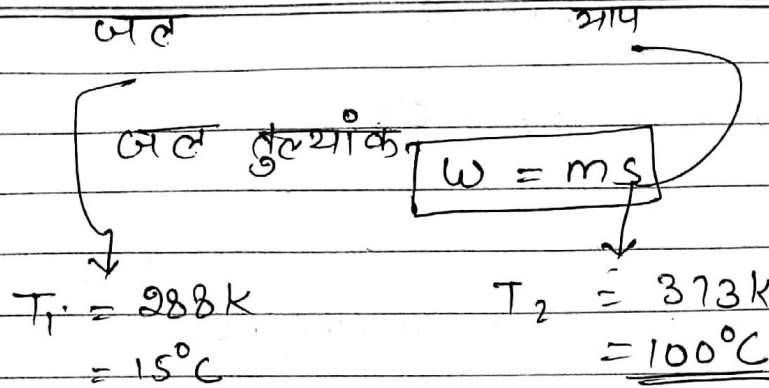 जल भाप
जल तुल्यांक W = ms
T₁ = 288K T₂ = 373K
= 15°C = 100°C